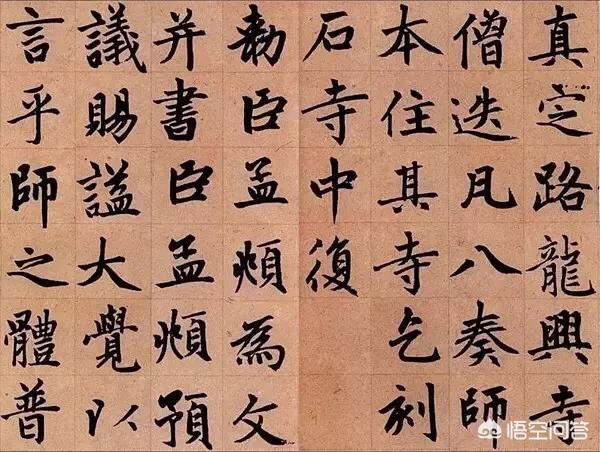 真定路龍興寺
僧迭凡八奏師
本住其寺乞刻
石寺中復
勅臣孟頫為文
并書臣孟頫預
議賜謚大覺以
言乎師之體普
悟空问答